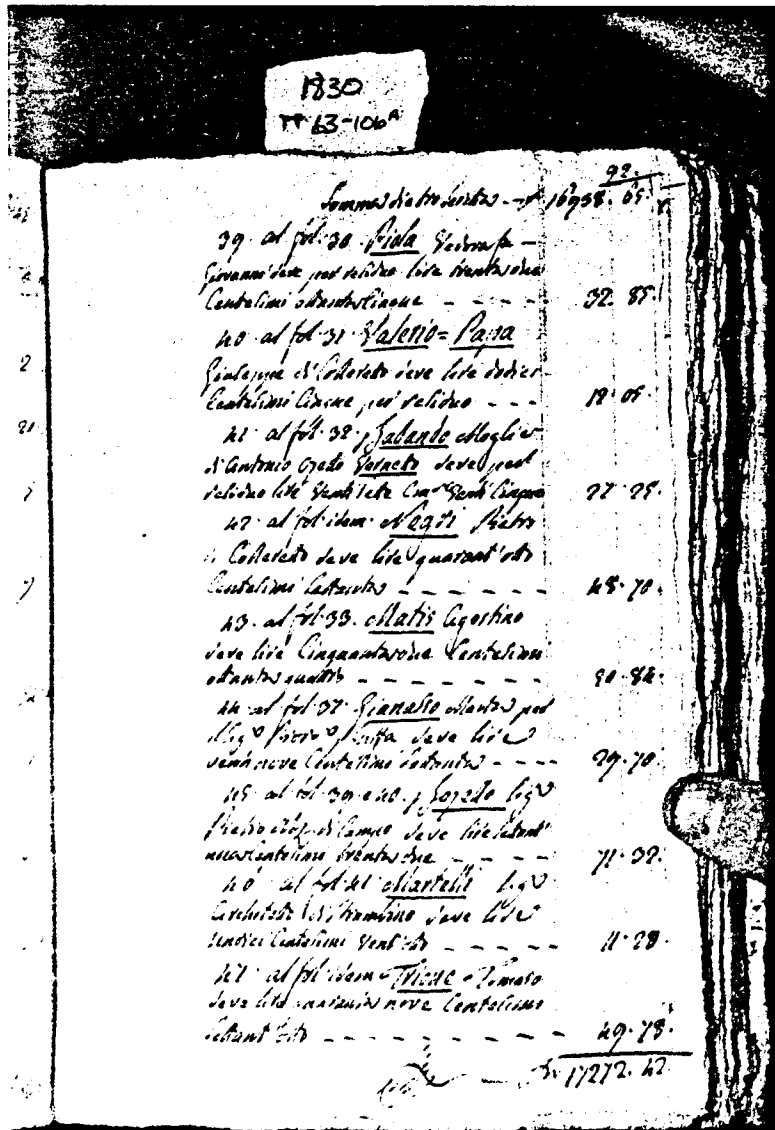 1830
PP 63-106A
92.
Somma dietro scritta - 16938. 65.
39. al fol. 30. Piola Vedova fu
Giovanni deve per residuo lire trentadue
Centesimi ottantacinque - - - - 32. 85.
40 al fol. 31. Valerio = Papa
Giuseppe di Colleretto deve lire dodici
Centesimi Cinque per residuo - - - 12. 05.
41. al fol. 32. Moglie
di Antonio deve per
residuo lire Venti sette Venti Cinque 27 25.
42. al fol. idem. Negri Pietro
Colleretto deve lire quarant'otto
Centesimi Settanta - - - - - - 48. 70.
43. al fol. 33. Matis Agostino
deve lire Cinquantadue Centesimi
ottanta quattro - - - - - -
44 al fol. 37. per
deve lire
venti nove Centesimi Settanta - - - - 29. 70.
45. al fol. 39. e 40.
Pietro di Campo deve lire settant'
Centesimi trentadue - - - - 71. 32.
46 al fol. 41. Martelli
Architetto di Strambino deve lire
undici Centesimi Vent'otto - - - - 11. 28.
47. al fol. idem Trione Tomaso
deve lire quaranta nove Centesimi
settant'otto - - - - - - - 49. 78.
17272. 42